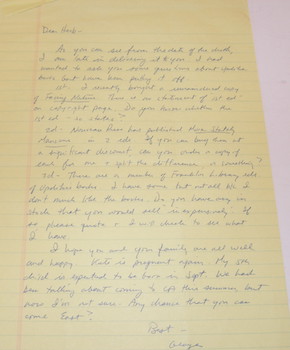 Dear Herb -
As you can see from the date of the check,
I am late in delivering it to you. I had
wanted to ask you some questions about Updike
but have been putting it off.
1st - I recently bought a remaindered copy
of Facing Nature. There is no statement of 1st ed on
copyright page. Do you know whether the
1st ed - so states?
2nd - Newman Press has published
in a ed. If you can buy them at
a significant discount can you order a copy of
each for me & split the difference
3rd - There are a number of Franklin Library eds
of Updike's books. I have some but not all. We I
don't much like the books. Do you have any in
stock that you would sell inexpensively. If
so please quote & I will check to see what
I have.
I hope you and your family are all well
and happy. Kate is pregnant again. My
child is expected to be born in Sept. We had
been talking about coming to this summer but
now I'm not sure. Any chance that you can
come East?
Best -
George